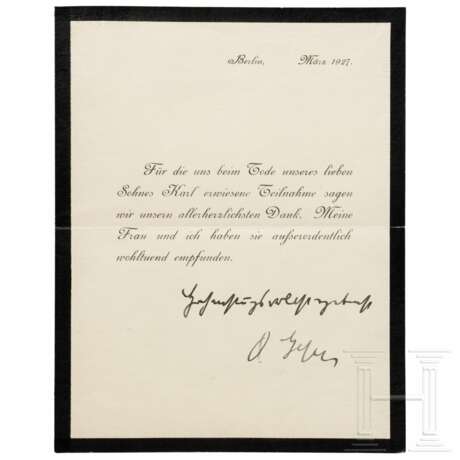 Berlin, März 1927.
Für die uns beim Tode unseres lieben
Sohnes Karl erwiesene Teilnahme sagen
wir unsern allerherzlichsten Dank. Meine
Frau und ich haben sie außerordentlich
wohltuend empfunden.